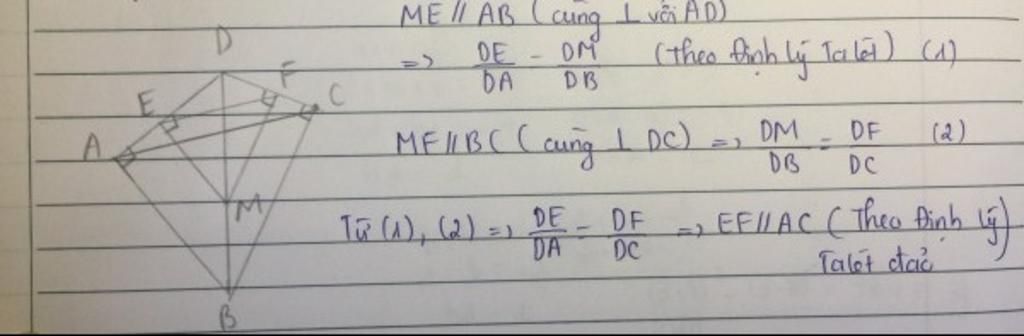 ME // AB (cùng ⊥ với AD)
=> DE/DA = DM/DB (Theo Định lý Talét) (1)
MF // BC (cùng ⊥ DC) => DM/DB = DF/DC (2)
Từ (1), (2) => DE/DA = DF/DC => EF // AC (Theo Định lý
Talét đảo)
D
F
E
C
A
M
B